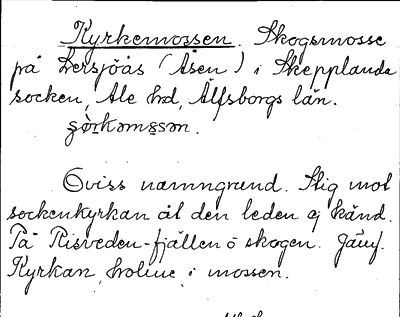 Kyrkemossen. Skogsmosse
på Dersjöås (Åsen) i Skepplanda
socken, Ale hd, Älfsborgs län.
Oviss namngrund. Stig mot
sockenkyrkan åt den leden ej känd.
På Risveden-fjällen o skogen. Jämf.
Kyrkan, holme i mossen.